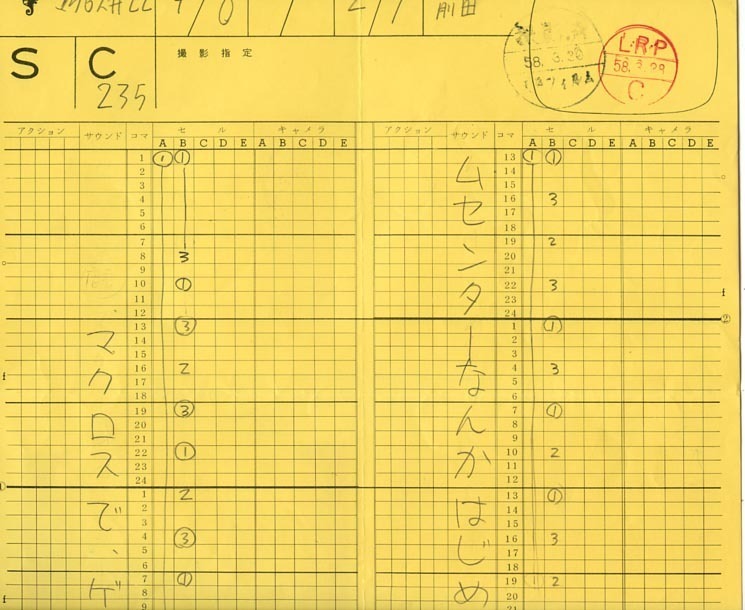 前田
58.3.28
L・R・P
58.3.28
C
S
C
235
撮影指定
アクション サウンド コマ セル キャメラ
A B C D E A B C D E
1 ① ①
2
3
4
5
6
7
8 3
9
10 ①
11
12
13 ③
14
15
16 2
17
18
19 ③
20
21
22 ①
23
24
①
1 2
2
3
4 ③
5
6
7 ①
8
9
マクロスで、ゲ
アクション サウンド コマ セル キャメラ
A B C D E A B C D E
13 ① ①
14
15
16 3
17
18
19 2
20
21
22 3
23
24
②
1 ①
2
3
4 3
5
6
7 ①
8
9
10 2
11
12
13 ①
14
15
16 3
17
18
19 2
20
21
ムセンターなんかはじめ